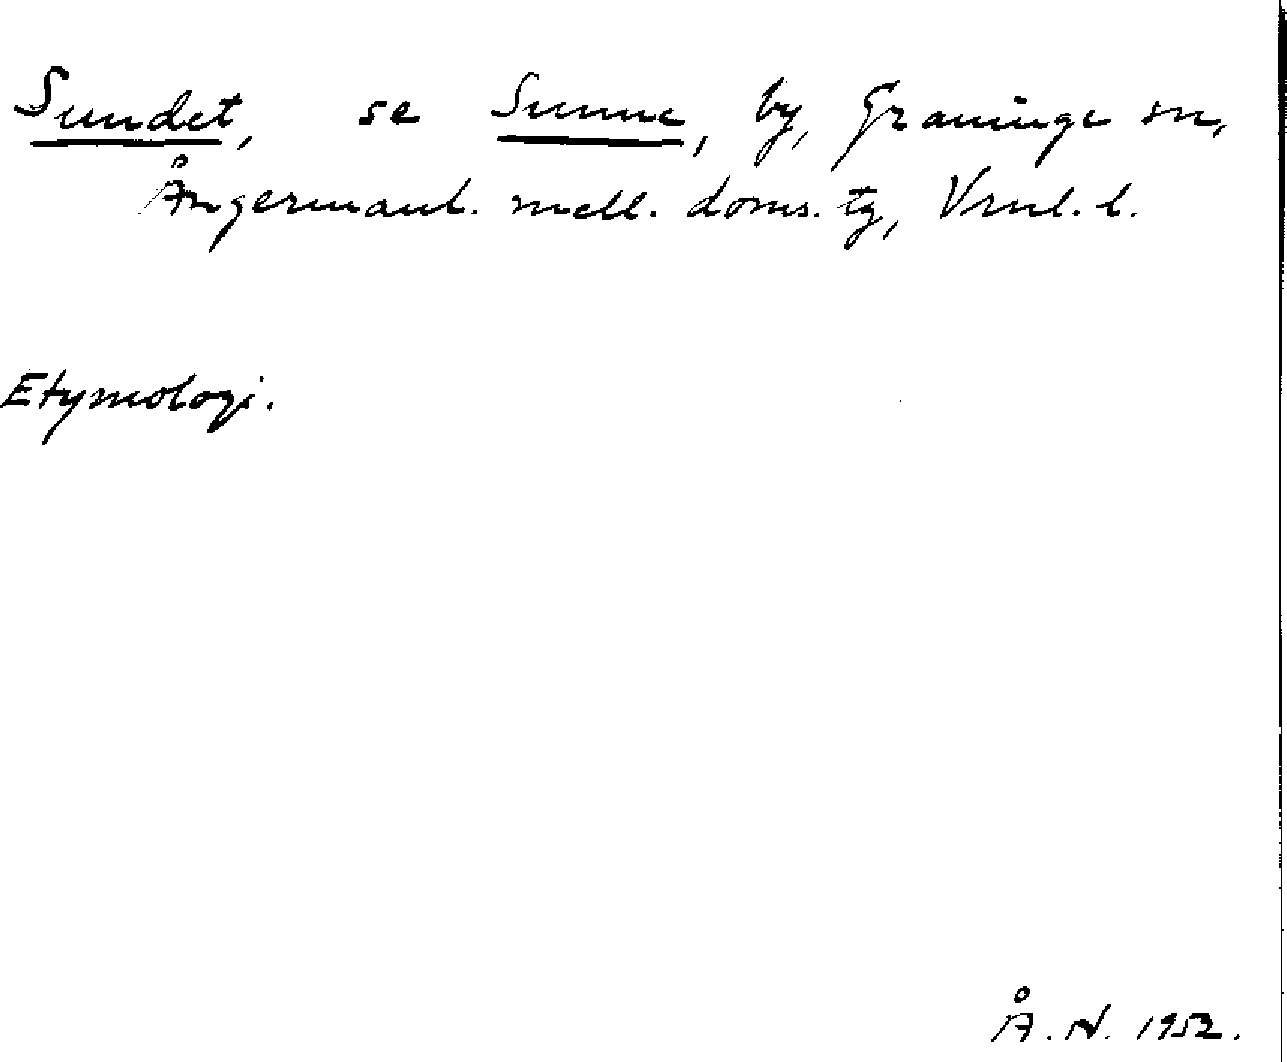 Sundet, se Sunne, by, Graninge sn,
Ångermanl. mell. doms. tg, Vrnl. l.
Etymologi.
Å. N. 1952.